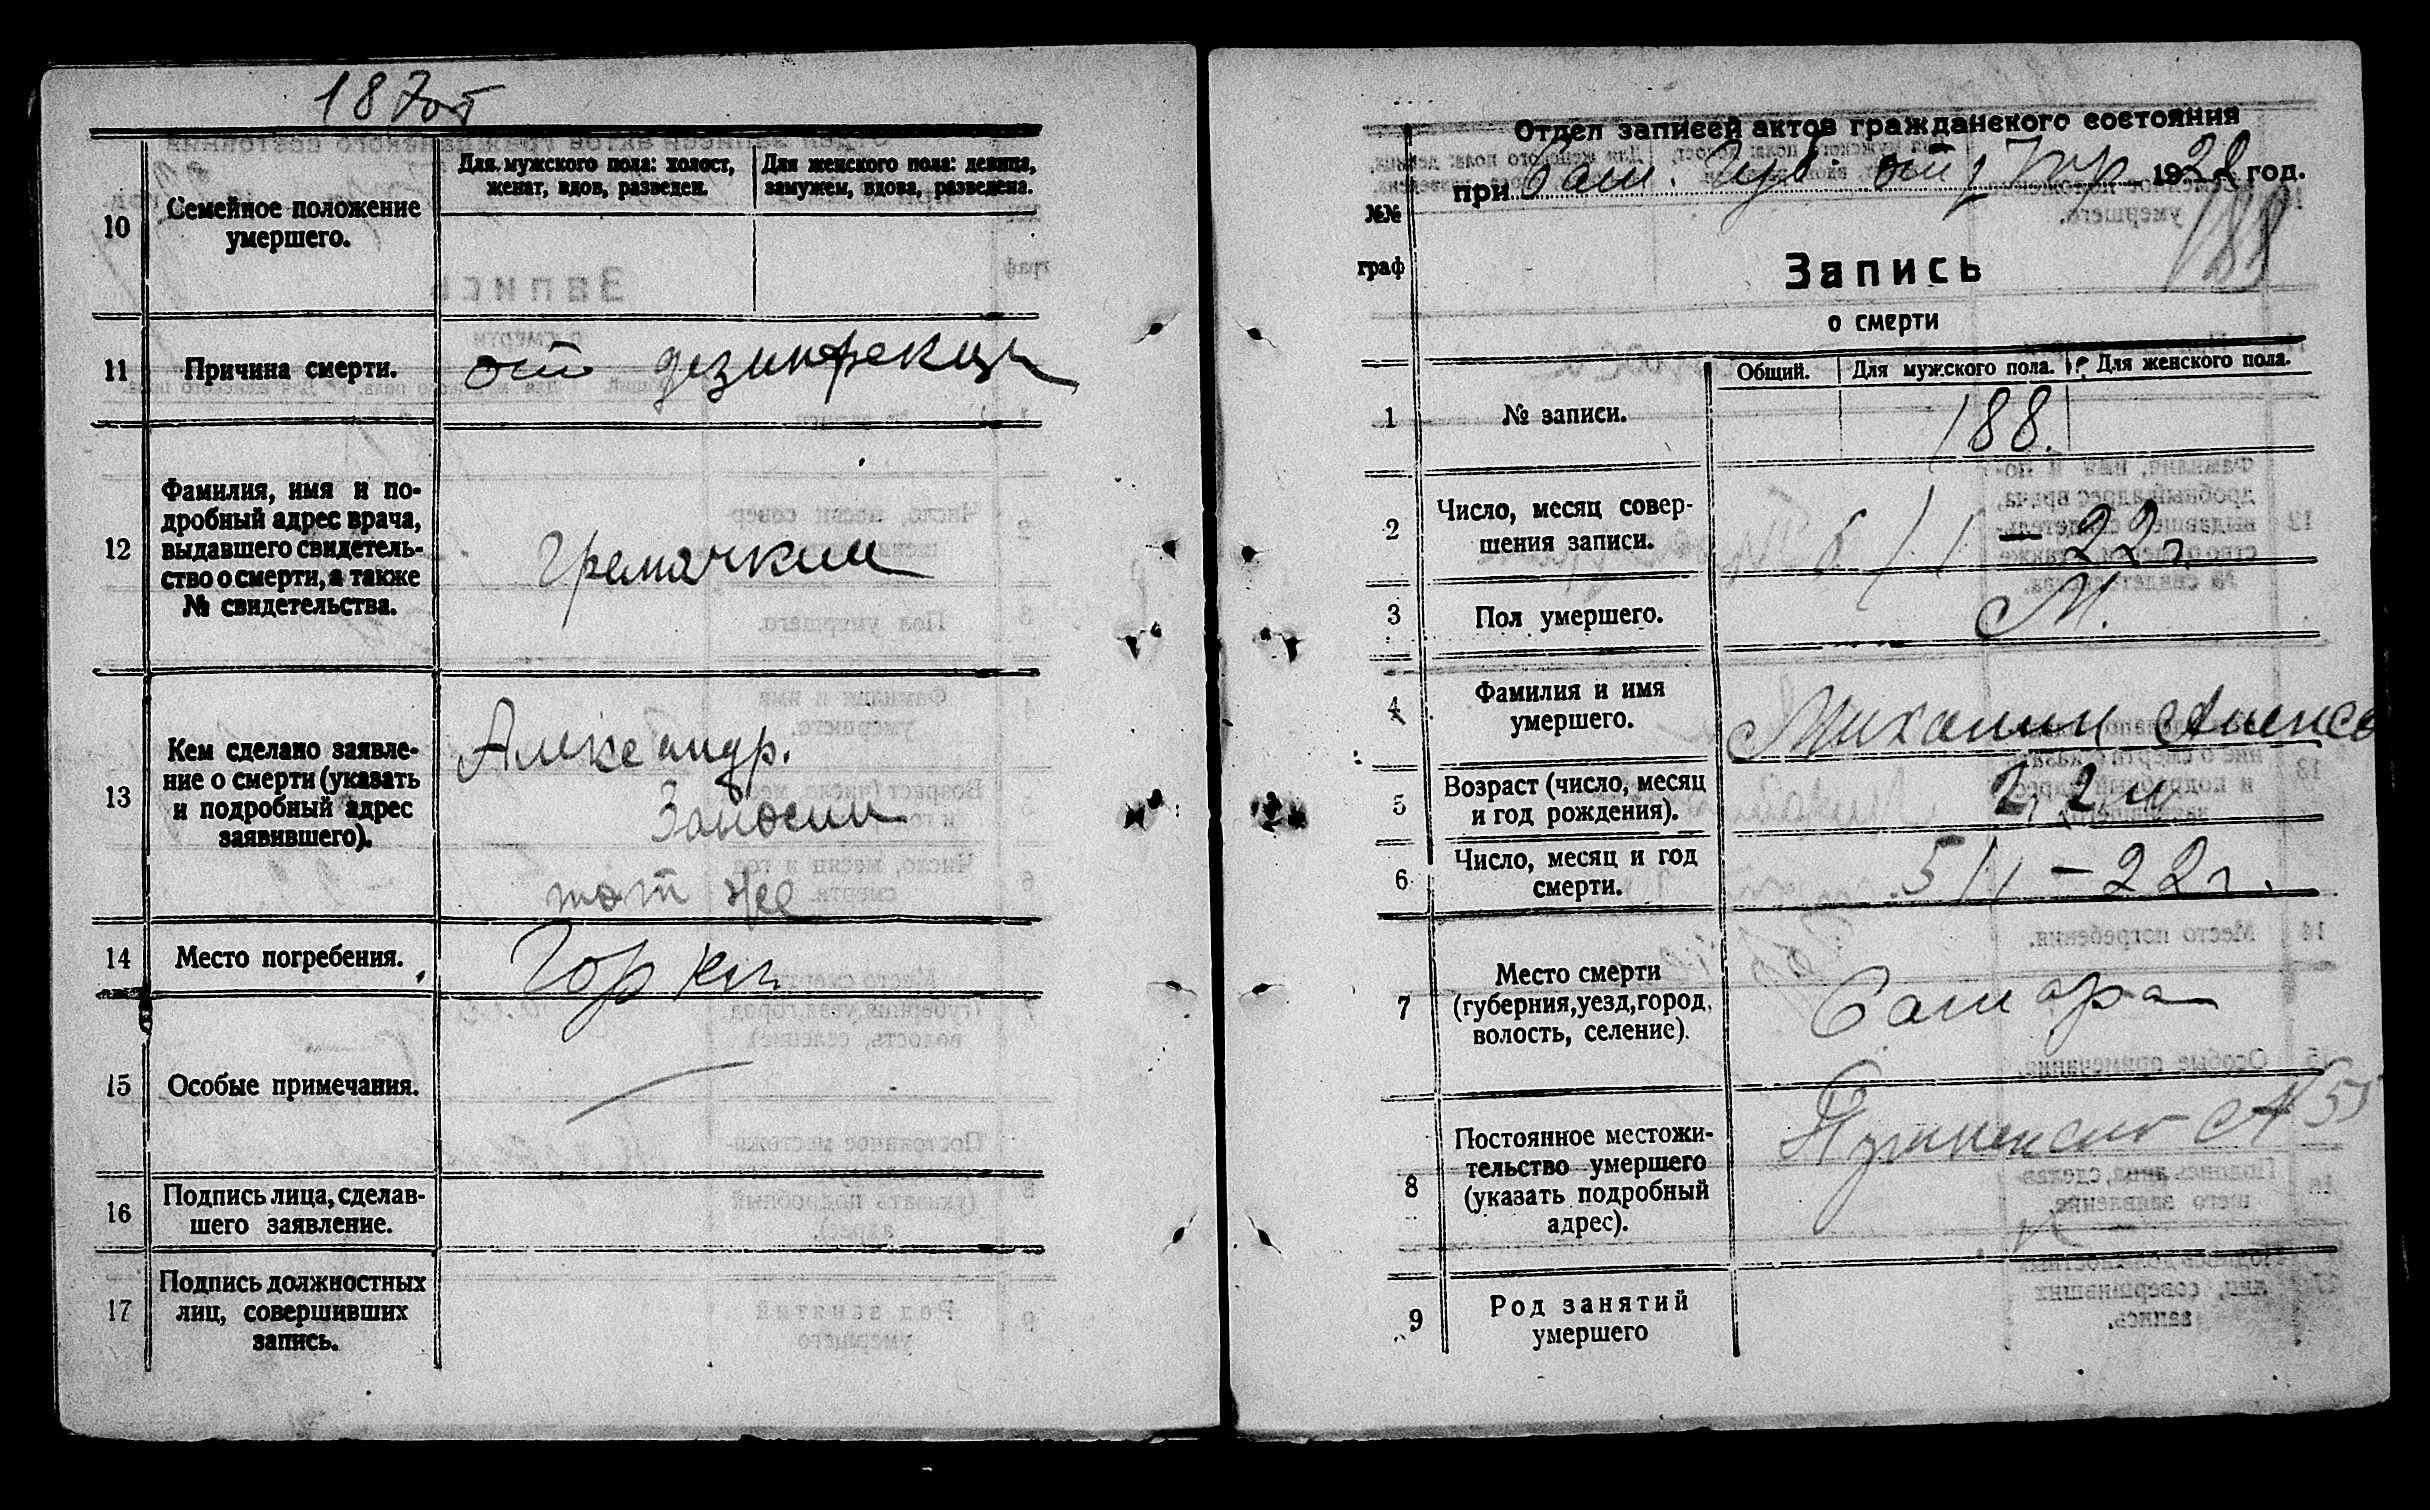 187об
10
Семейное положение
умершего.
Для мужского пола: холост,
женат, вдов, разведен.
Для женского пола: девица,
замужем, вдова, разведена.
11
Причина смерти.
от дезинфекци
12
Фамилия, имя и по-
дробный адрес врача,
выдавшего свидетель-
ство о смерти, а также
№ свидетельства.
13
Кем сделано заявле-
ние о смерти (указать
и подробный адрес
заявившего).
Александр.
тот же
14
Место погребения.
Горки
15
Особые примечания.
16
Подпись лица, сделав-
шего заявление.
17
Подпись должностных
лиц, совершивших
запись.
Отдел записей актов гражданского состояния
при Сам. Губ. отд. Упр 1922 год.
188
№№
граф
Запись
о смерти
Общий.
Для мужского пола.
Для женского пола.
1
№ записи.
188.
2
Число, месяц совер-
шения записи.
6/I - 22г.
3
Пол умершего.
М.
4
Фамилия и имя
умершего.
5
Возраст (число, месяц
и год рождения).
6
Число, месяц и год
смерти.
5/I - 22г.
7
Место смерти
(губерния, уезд, город,
волость, селение).
Самара
8
Постоянное местожи-
тельство умершего
(указать подробный
адрес).
9
Род занятий
умершего